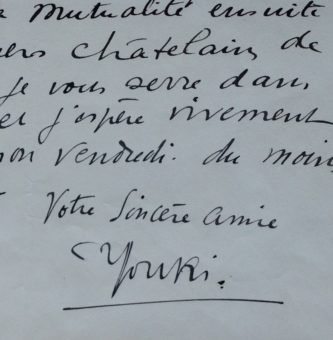 Mutualité ensuite
chers châtelain de
je vous serre dans
et j'espère vivement
non vendredi. du moins
Votre Sincère amie
Youki.